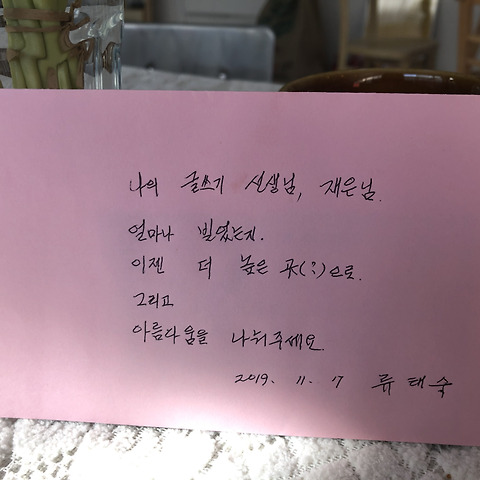 나의 글쓰기 선생님, 재은님.
얼마나 빌었는지.
이젠 더 높은 곳(?)으로.
그리고
아름다움을 나눠주세요.
2019. 11. 17 류태숙